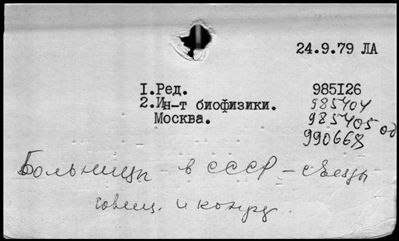 24.9.79 ЛА
I.Ред. 985I26
2.Ин-т биофизики. 985404
Москва. 985405 од
990668
Больницы - в СССР - съезды
совещ. и конфр.